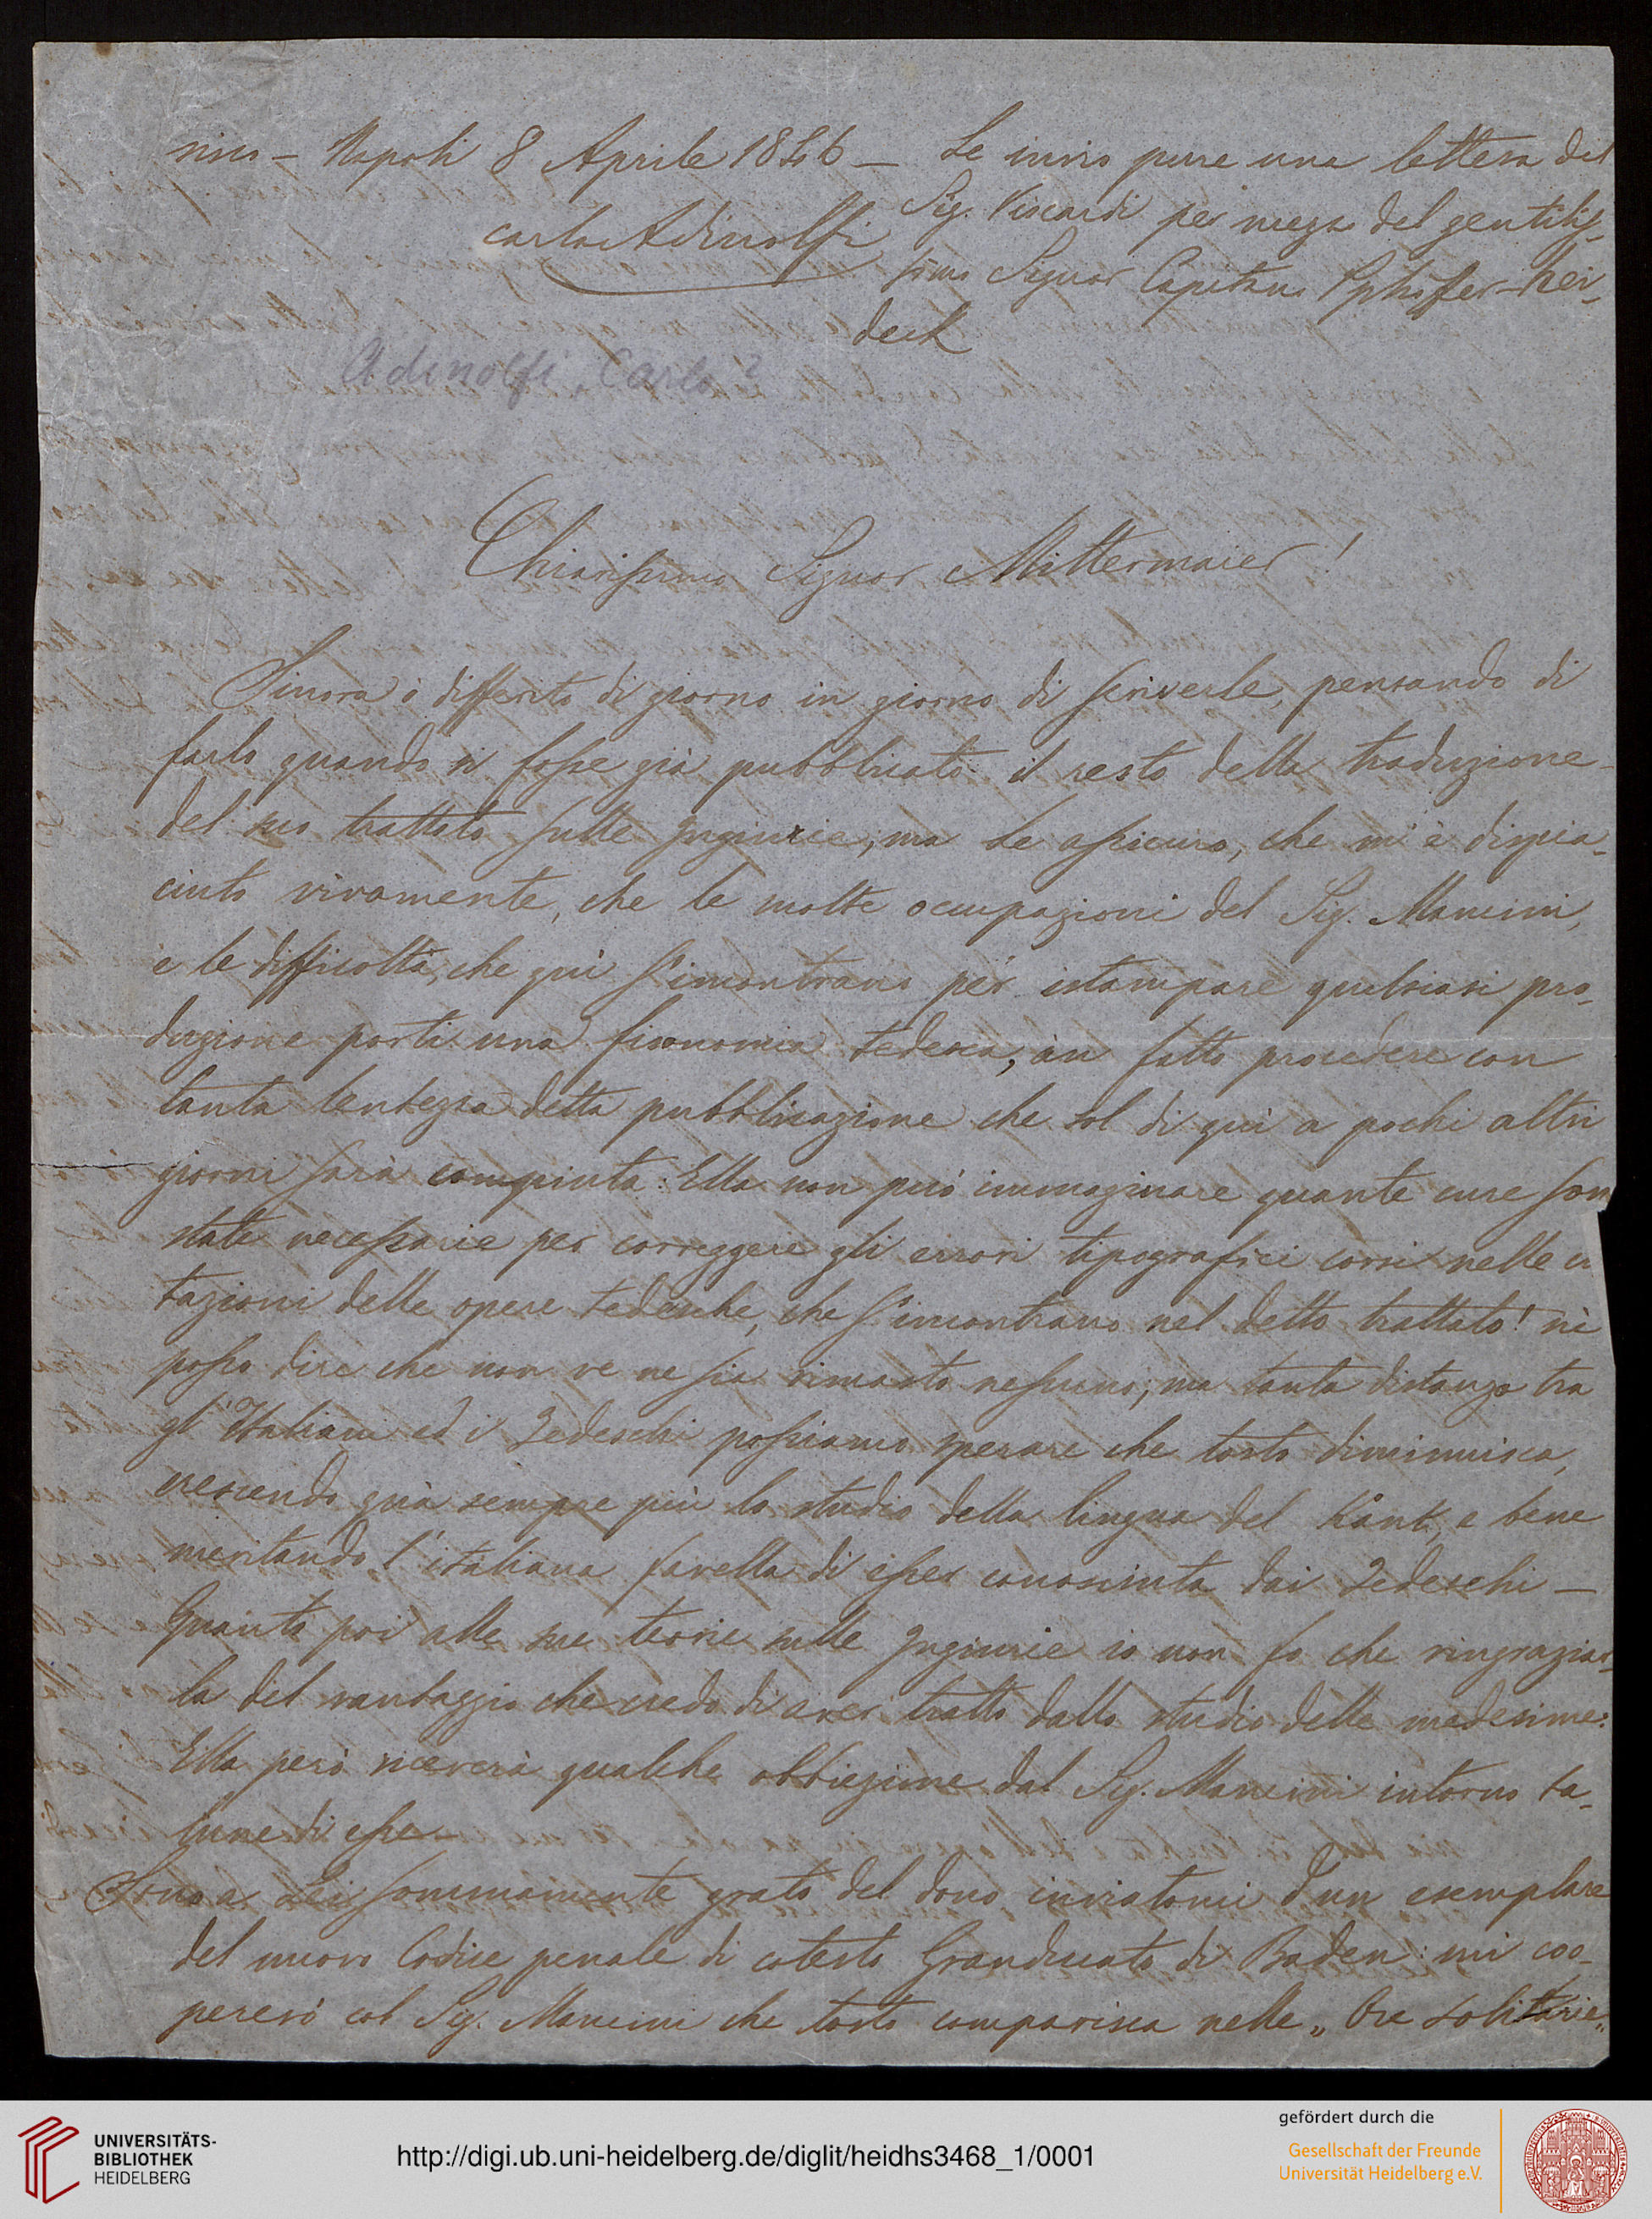 mio – Napoli 8 Aprile 1846 – Le invio pure una lettera del
Sig. Viscardi per mezzo del gentilis-
carlo Adinolfi
simo Signor Capitano Pphiffer-Hei-
deck
Adinolfi, Carlo?
Chiarissimo Signor Mittermaier!
Sinora ò differito di giorno in giorno di scriverle, pensando di
farlo quando si fosse già pubblicato il resto della traduzione
del suo trattato sulle Ingiurie, ma Le assicuro, che m'è dispia-
ciuto vivamente, che le molte occupazioni del Sig. Mancini,
e le difficoltà, che quì s'incontrano per istampare qualsiasi pro-
duzione porti una fisonomia tedesca, àn fatto procedere con
tanta lentezza detta pubblicazione che sol di quì a pochi altri
giorni sarà compiuta: Ella non può immaginare quante cure son
state necessarie per correggere gli errori tipografici corsi nelle ci
tazioni delle opere tedesche, che s'incontrano nel detto trattato! nè
posso dire che non ve ne sia rimasto nessuno; ma tanta distanza tra
gl'Italiani ed i Tedeschi possiamo sperare che tosto diminuisca,
crescendo quà sempre più lo studio della lingua del Kant, e bene
meritando l'italiana favella di esser conosciuta dai Tedeschi –
Quanto poi alle sue teorie sulle Ingiurie io non fo che ringraziar-
la del vantaggio che credo di aver tratto dallo studio delle medesime:
Ella però riceverà qualche obbiezione dal Sig. Mancini intorno ta-
lune di esse –
Sono a Lei sommamente grato del dono inviatomi d'un esemplare
del nuovo Codice penale di cotesto Granducato di Baden: mi coo-
pererò col Sig. Mancini che tosto comparisca nelle „Ore solitarie„
UNIVERSITÄTS-
BIBLIOTHEK
HEIDELBERG
http://digi.ub.uni-heidelberg.de/diglit/heidhs3468_1/0001
gefördert durch die
Gesellschaft der Freunde
Universität Heidelberg e.V.